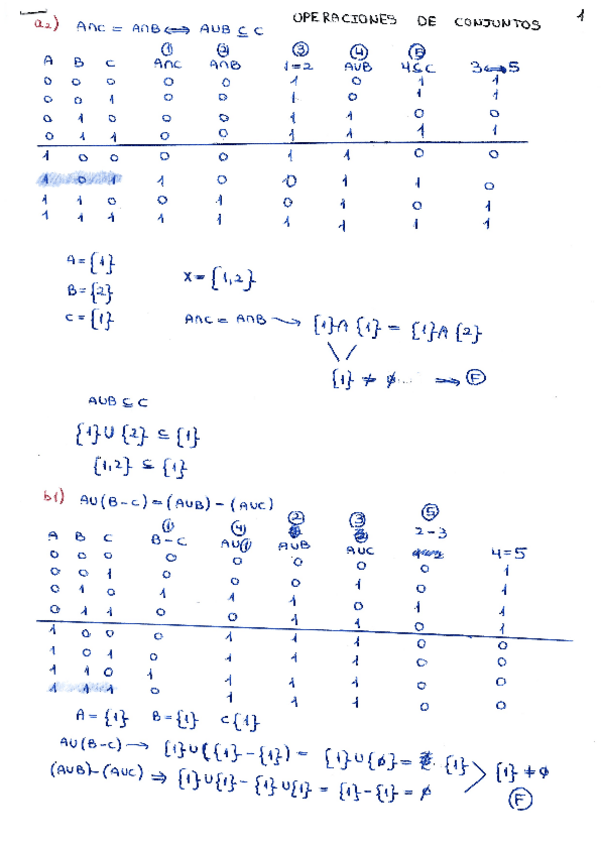 OPERACIONES DE CONJUNTOS 1
a2) A∩C = A∩B ⟺ A∪B ⊆ C
① ② ③ ④ ⑤
A B C A∩C A∩B 1=2 A∪B 4⊆C 3⟺5
0 0 0 0 0 1 0 1 1
0 0 1 0 0 1 0 1 1
0 1 0 0 0 1 1 0 0
0 1 1 0 0 1 1 1 1
1 0 0 0 0 1 1 0 0
1 0 1 1 0 0 1 1 0
1 1 0 0 1 0 1 0 1
1 1 1 1 1 1 1 1 1
A={1}
B={2} X={1,2}
C={1} A∩C = A∩B → {1}∩{1} = {1}∩{2}
{1} ≠ ∅ ⟹ Ⓕ
A∪B ⊆ C
{1}∪{2} ⊆ {1}
{1,2} ⊆ {1}
b1) A∪(B-C)=(A∪B)-(A∪C)
① ④ ② ③ ⑤
A B C B-C A∪① A∪B A∪C 2-3 4=5
0 0 0 0 0 0 0 0 1
0 0 1 0 0 0 1 0 1
0 1 0 1 1 1 0 1 1
0 1 1 0 0 1 1 0 1
1 0 0 0 1 1 1 0 0
1 0 1 0 1 1 1 0 0
1 1 0 1 1 1 1 0 0
1 1 1 0 1 1 1 0 0
A={1} B={1} C{1}
A∪(B-C) → {1}∪({1}-{1}) = {1}∪{∅} = {1}
{1} ≠ ∅
(A∪B)-(A∪C) ⟹ {1}∪{1}-{1}∪{1} = {1}-{1} = ∅
Ⓕ